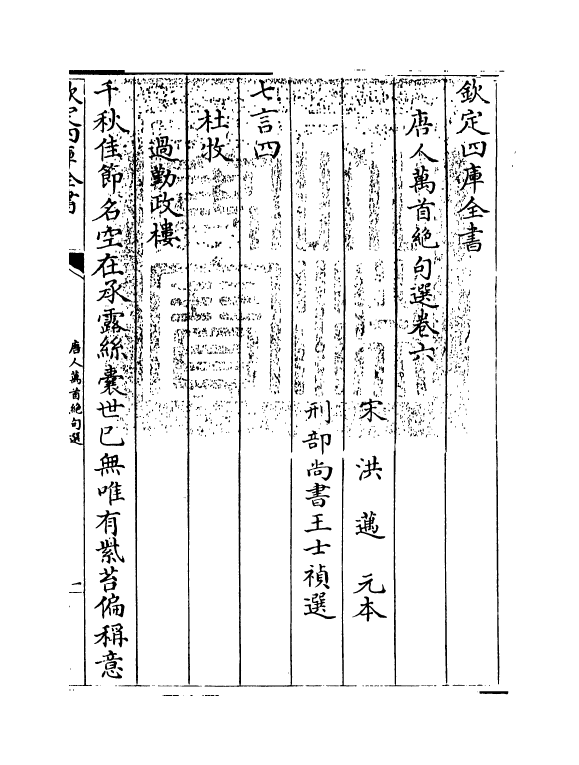 欽定四庫全書
唐人萬首絶句選卷六
宋 洪邁 元本
刑部尚書王士禎選
七言四
杜牧
過勤政樓
千秋佳節名空在承露絲囊世已無唯有紫苔偏稱意
欽定四庫全書
唐人萬首絶句選